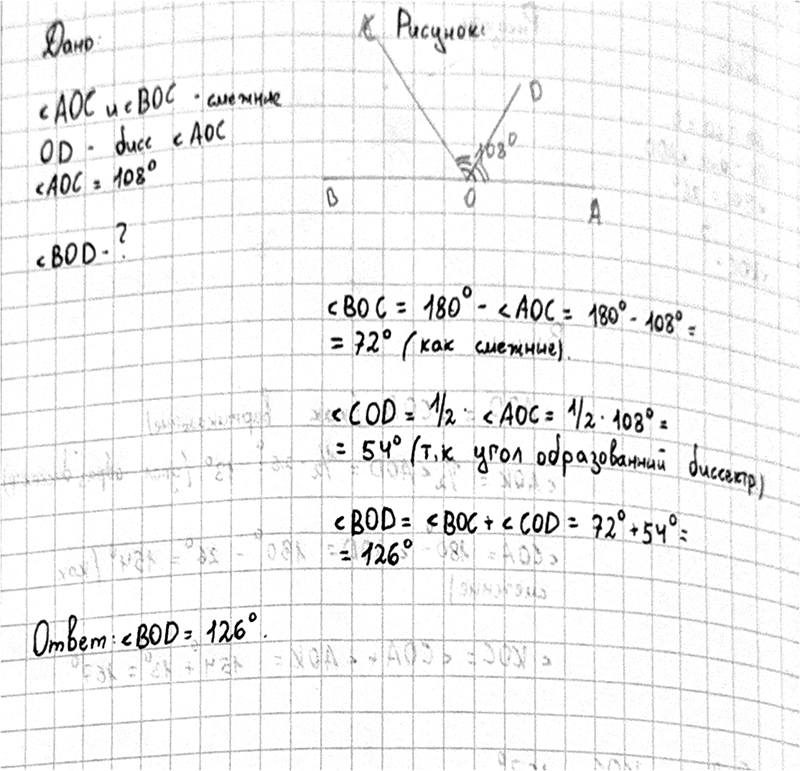 Дано:
Рисунок:
∠AOC и ∠BOC - смежние
OD - бисс ∠AOC
∠AOC = 108°
∠BOD - ?
C
D
108°
B
O
A
∠BOC = 180° - ∠AOC = 180° - 108° =
= 72° (как смежние).
∠COD = 1/2 · ∠AOC = 1/2 · 108° =
= 54° (т.к угол образованний биссектр)
∠BOD = ∠BOC + ∠COD = 72° + 54° =
= 126°
Ответ: ∠BOD = 126°.